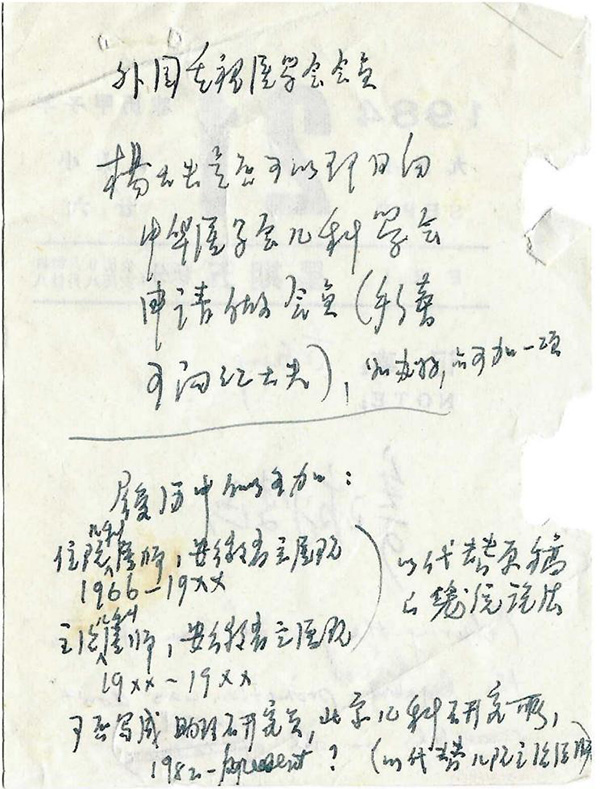 外国医学会会员
杨大夫是否可以即日向
中华医学会儿科学会
申请做会员(手续
可问江大夫),如办好,亦可加一项
履历中似可加:
儿科
住院医师,安徽省立医院
1966-19xx
儿科
主治医师,安徽省立医院
19xx-19xx
以代替原稿
之笼统说法
可否写成助理研究员,北京儿科研究所,
1982-present? (以代替儿院主治医师